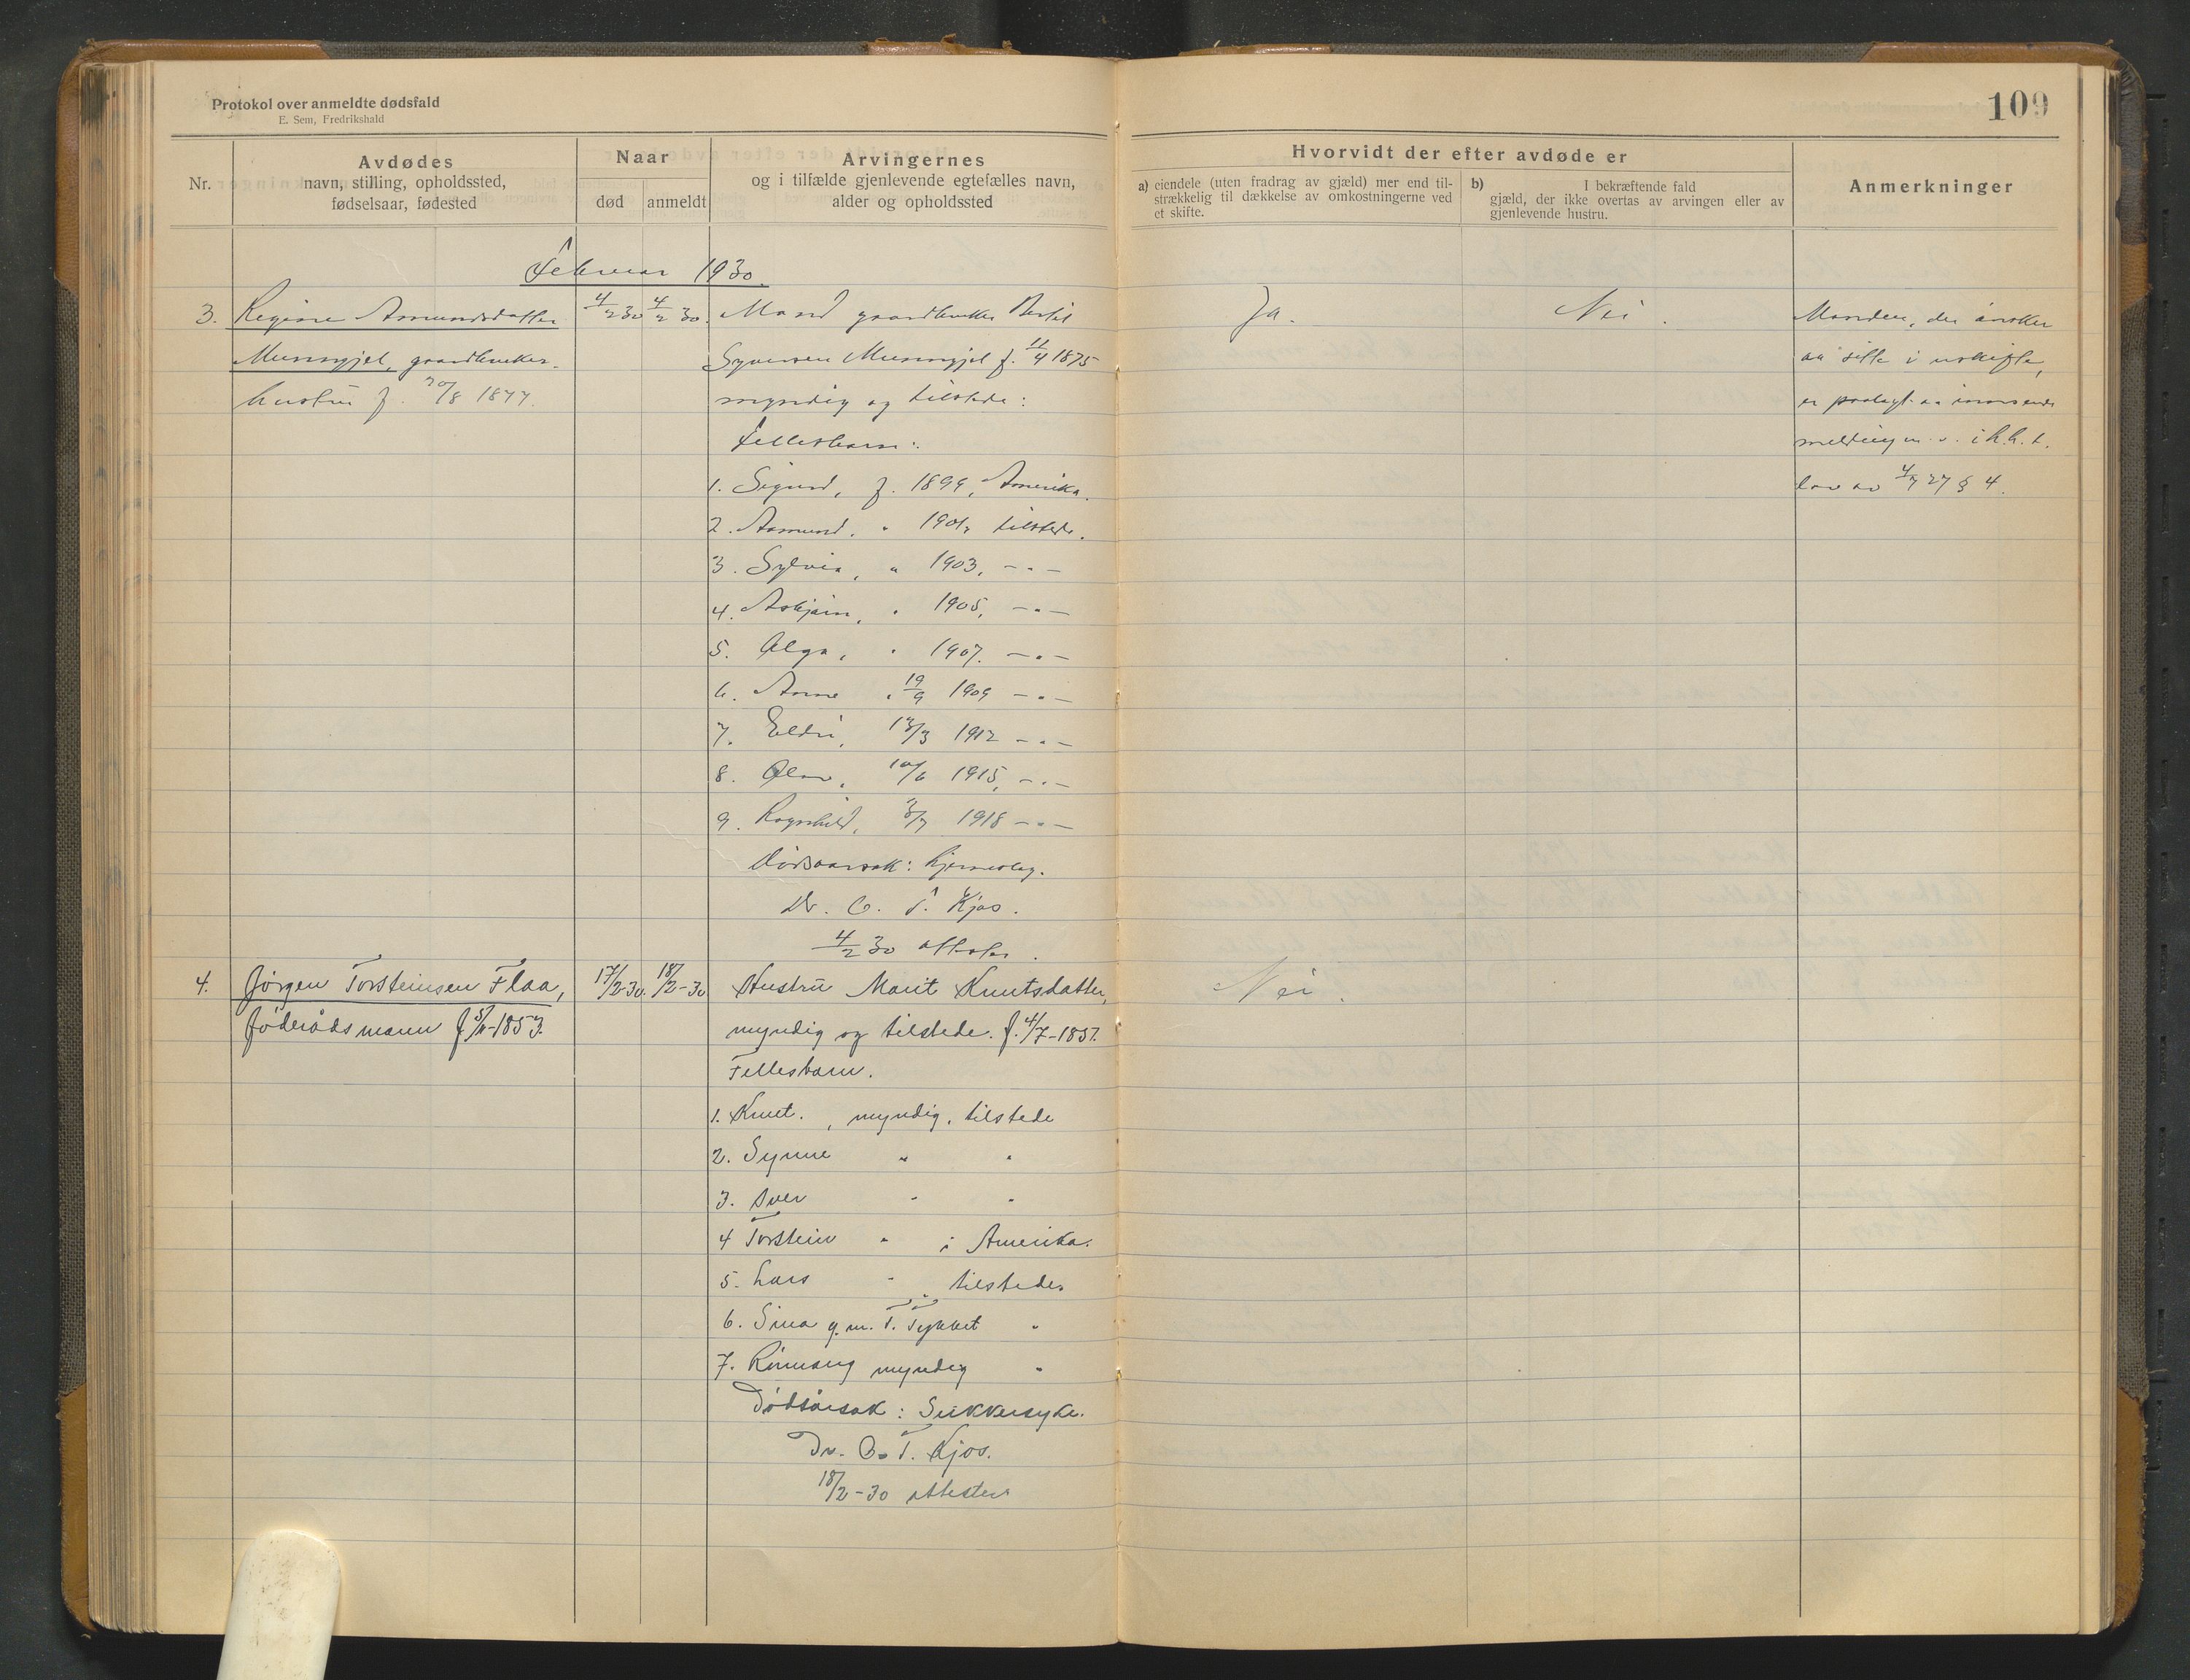 Protokol over anmeldte dødsfald
E. Sem, Fredrikshald
109
Nr.
Avdødes
navn, stilling, opholdssted,
fødselsaar, fødested
Naar
død
anmeldt
Arvingernes
og i tilfælde gjenlevende egtefælles navn,
alder og opholdssted
Hvorvidt der efter avdøde er
a) eiendele (uten fradrag av gjæld) mer end til-
strækkelig til dækkelse av omkostningerne ved
et skifte.
b) I bekræftende fald
gjæld, der ikke overtas av arvingen eller av
gjenlevende hustru.
Anmerkninger
Februar 1930.
3. Regine Amundsdatter
gaardbruker-
hustru f. 30/8 1877.
4/2 30
4/2 30.
Mand gaardbruker Bertil
Syversen f. 11/4 1875
myndig og tilstede:
Fellesbarn:
1. Sigurd, f. 1899, Amerika.
2. Aamund, " 1901, tilstede.
3. Sylvia, " 1903, - " -
4. Asbjørn, " 1905, - " -
5. Olga, " 1907. - " -
6. Anne " 19/9 1909 - " -
7. Eldri, 13/3 1912 - " -
8. Olav, 10/6 1915, - " -
9. Ragnhild, 3/7 1918 - " -
Dødsaarsak: hjerneslag.
Dr. O. T. Kjos.
4/2 30 attester.
Ja.
Nei.
Manden, der ønsker
aa sitte i uskifte,
er paalagt aa innsende
melding m. v. i h. h. t.
lov av 4/7 27 § 4.
4. Jørgen Torsteinsen Flaa,
føderådsmann
17/2-30.
18/2-30
Hustru Marit Knutsdatter,
myndig og tilstede. f. 4/7-1857.
Fellesbarn.
1. Knut. , myndig, tilstede
2. Synne " "
3. Iver " "
4 Torstein " i Amerika.
5. Lars " , tilstede
6. Sina g. m. T. "
7. Rønnaug myndig "
Dødsårsak: Sukkersyke.
Dr. O. T. Kjos.
18/2-30 attester
Nei.